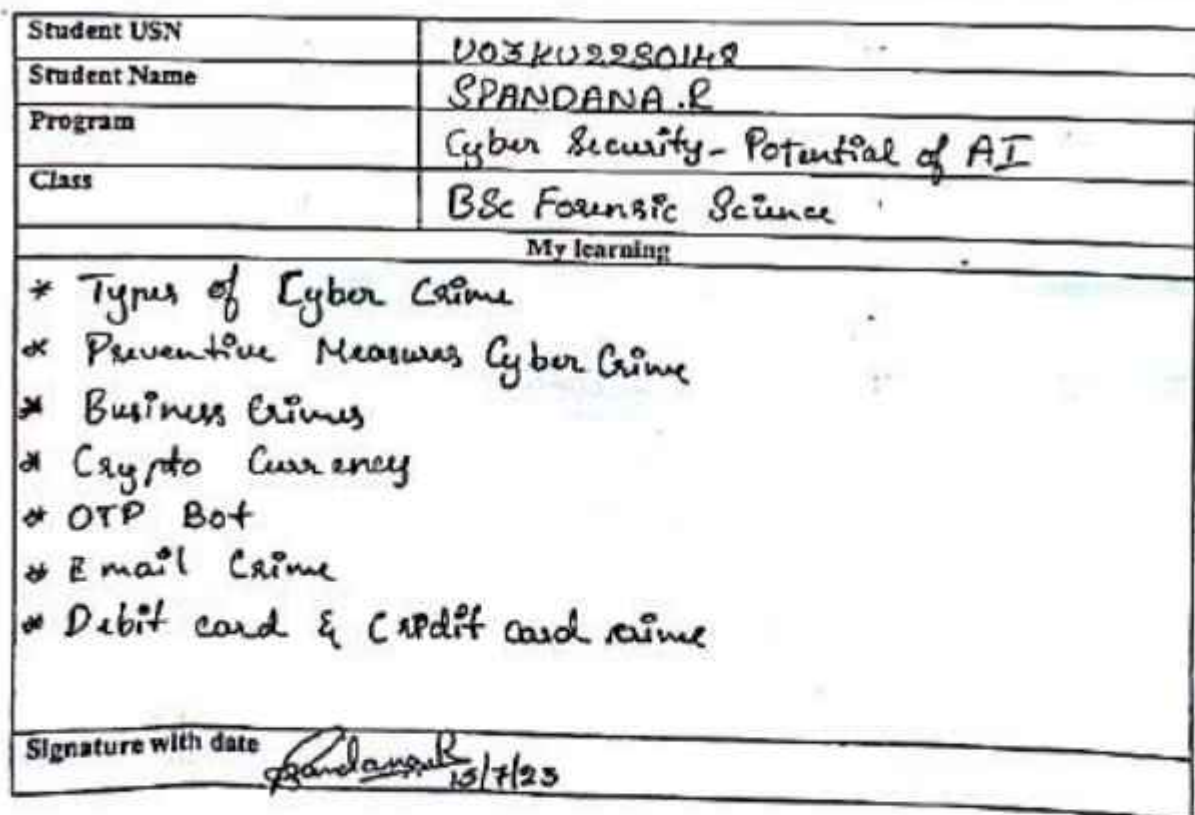 Student USN
U03KU22S0148
Student Name
SPANDANA.R
Program
Cyber Security - Potential of AI
Class
BSc Forensic Science
My learning
* Types of Cyber Crime
* Preventive Measures Cyber Crime
* Business Crimes
* Crypto Currency
* OTP Bot
* Email Crime
* Debit card & Credit card crime
Signature with date
Spandana.R
15/7/23